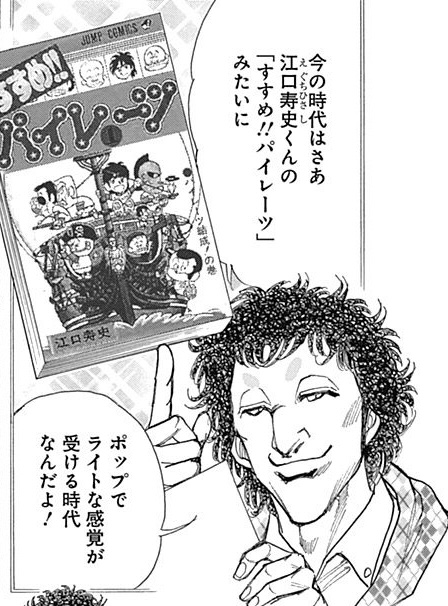 今の時代はさあ
江口寿史くんの
えぐちひさし
「すすめ!!パイレーツ」
みたいに
JUMP COMICS
すすめ!!
パイレーツ
江口寿史
ポップで
ライトな感覚が
受ける時代
なんだよ!